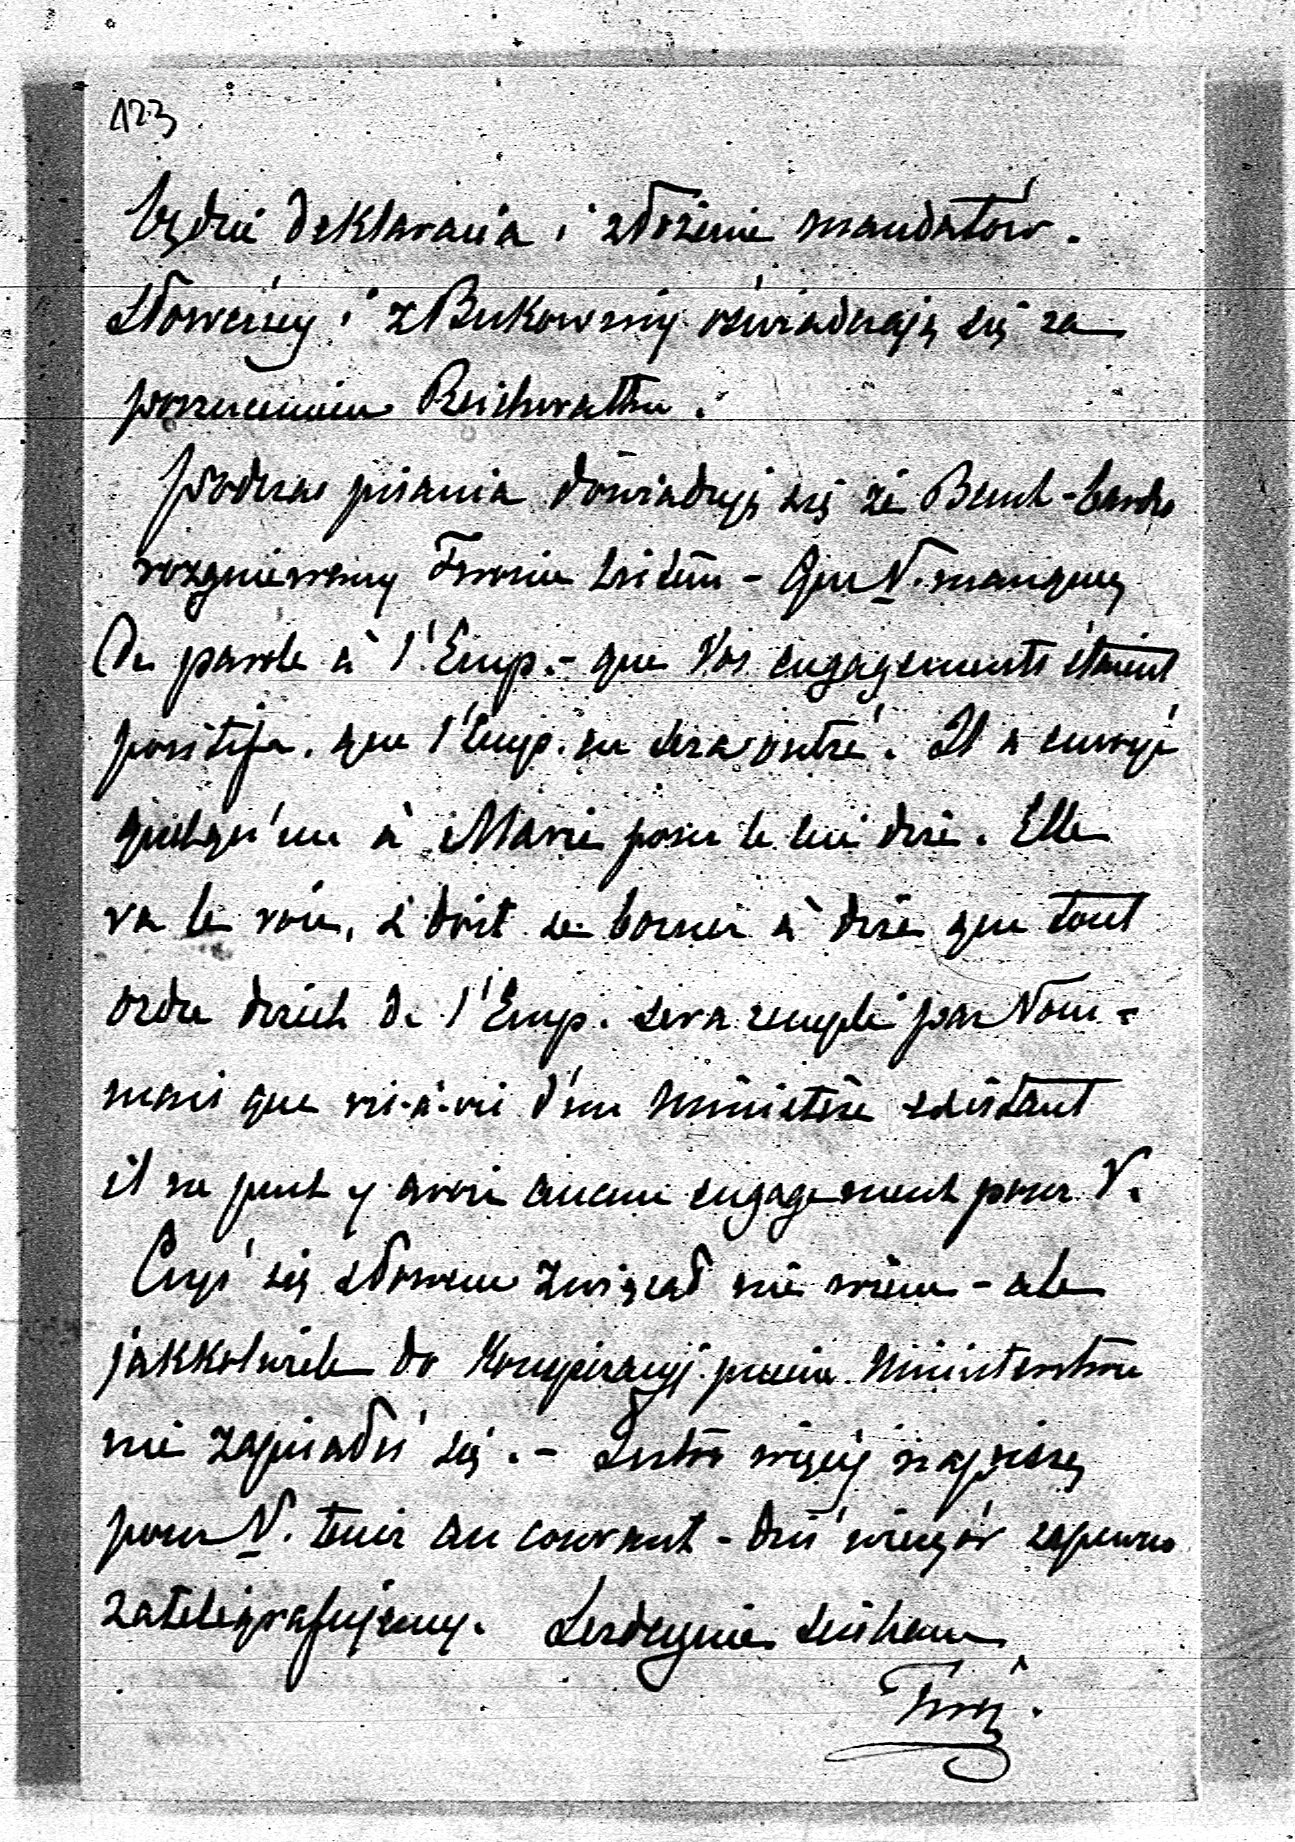 123
będzie deklaracia i złożenie mandatów.
Słoweńcy i z Bukowiny oświadczają się za
porzuceniem Reichsrathu.
Podczas pisania dowiaduję się że Beust - bardzo
rozgniewany Twoim listem - Que V. manquez
de parole à l'Emp. - que Vos engagements étaient
positifs. que l'Emp. en sera outré. Il a envoyé
quelqu'un à Marie pour le lui dire. Elle
va le voir, & doit se borner à dire que tout
ordre direct de l'Emp. sera rempli par Vous -
mais que vis-à-vis d'un Ministère existant
il ne peut y avoir aucun engagement pour V.
Czyś się słowem związał nie wiem - ale
jakkolwiek do Konspiracyj przeciw Ministerstwu
nie zapisałeś się. - Jutro więcej napiszę
pour V. tenir au courant - dziś wieczór zapewno
zatelegrafujemy. Serdecznie ściskam
Twój.